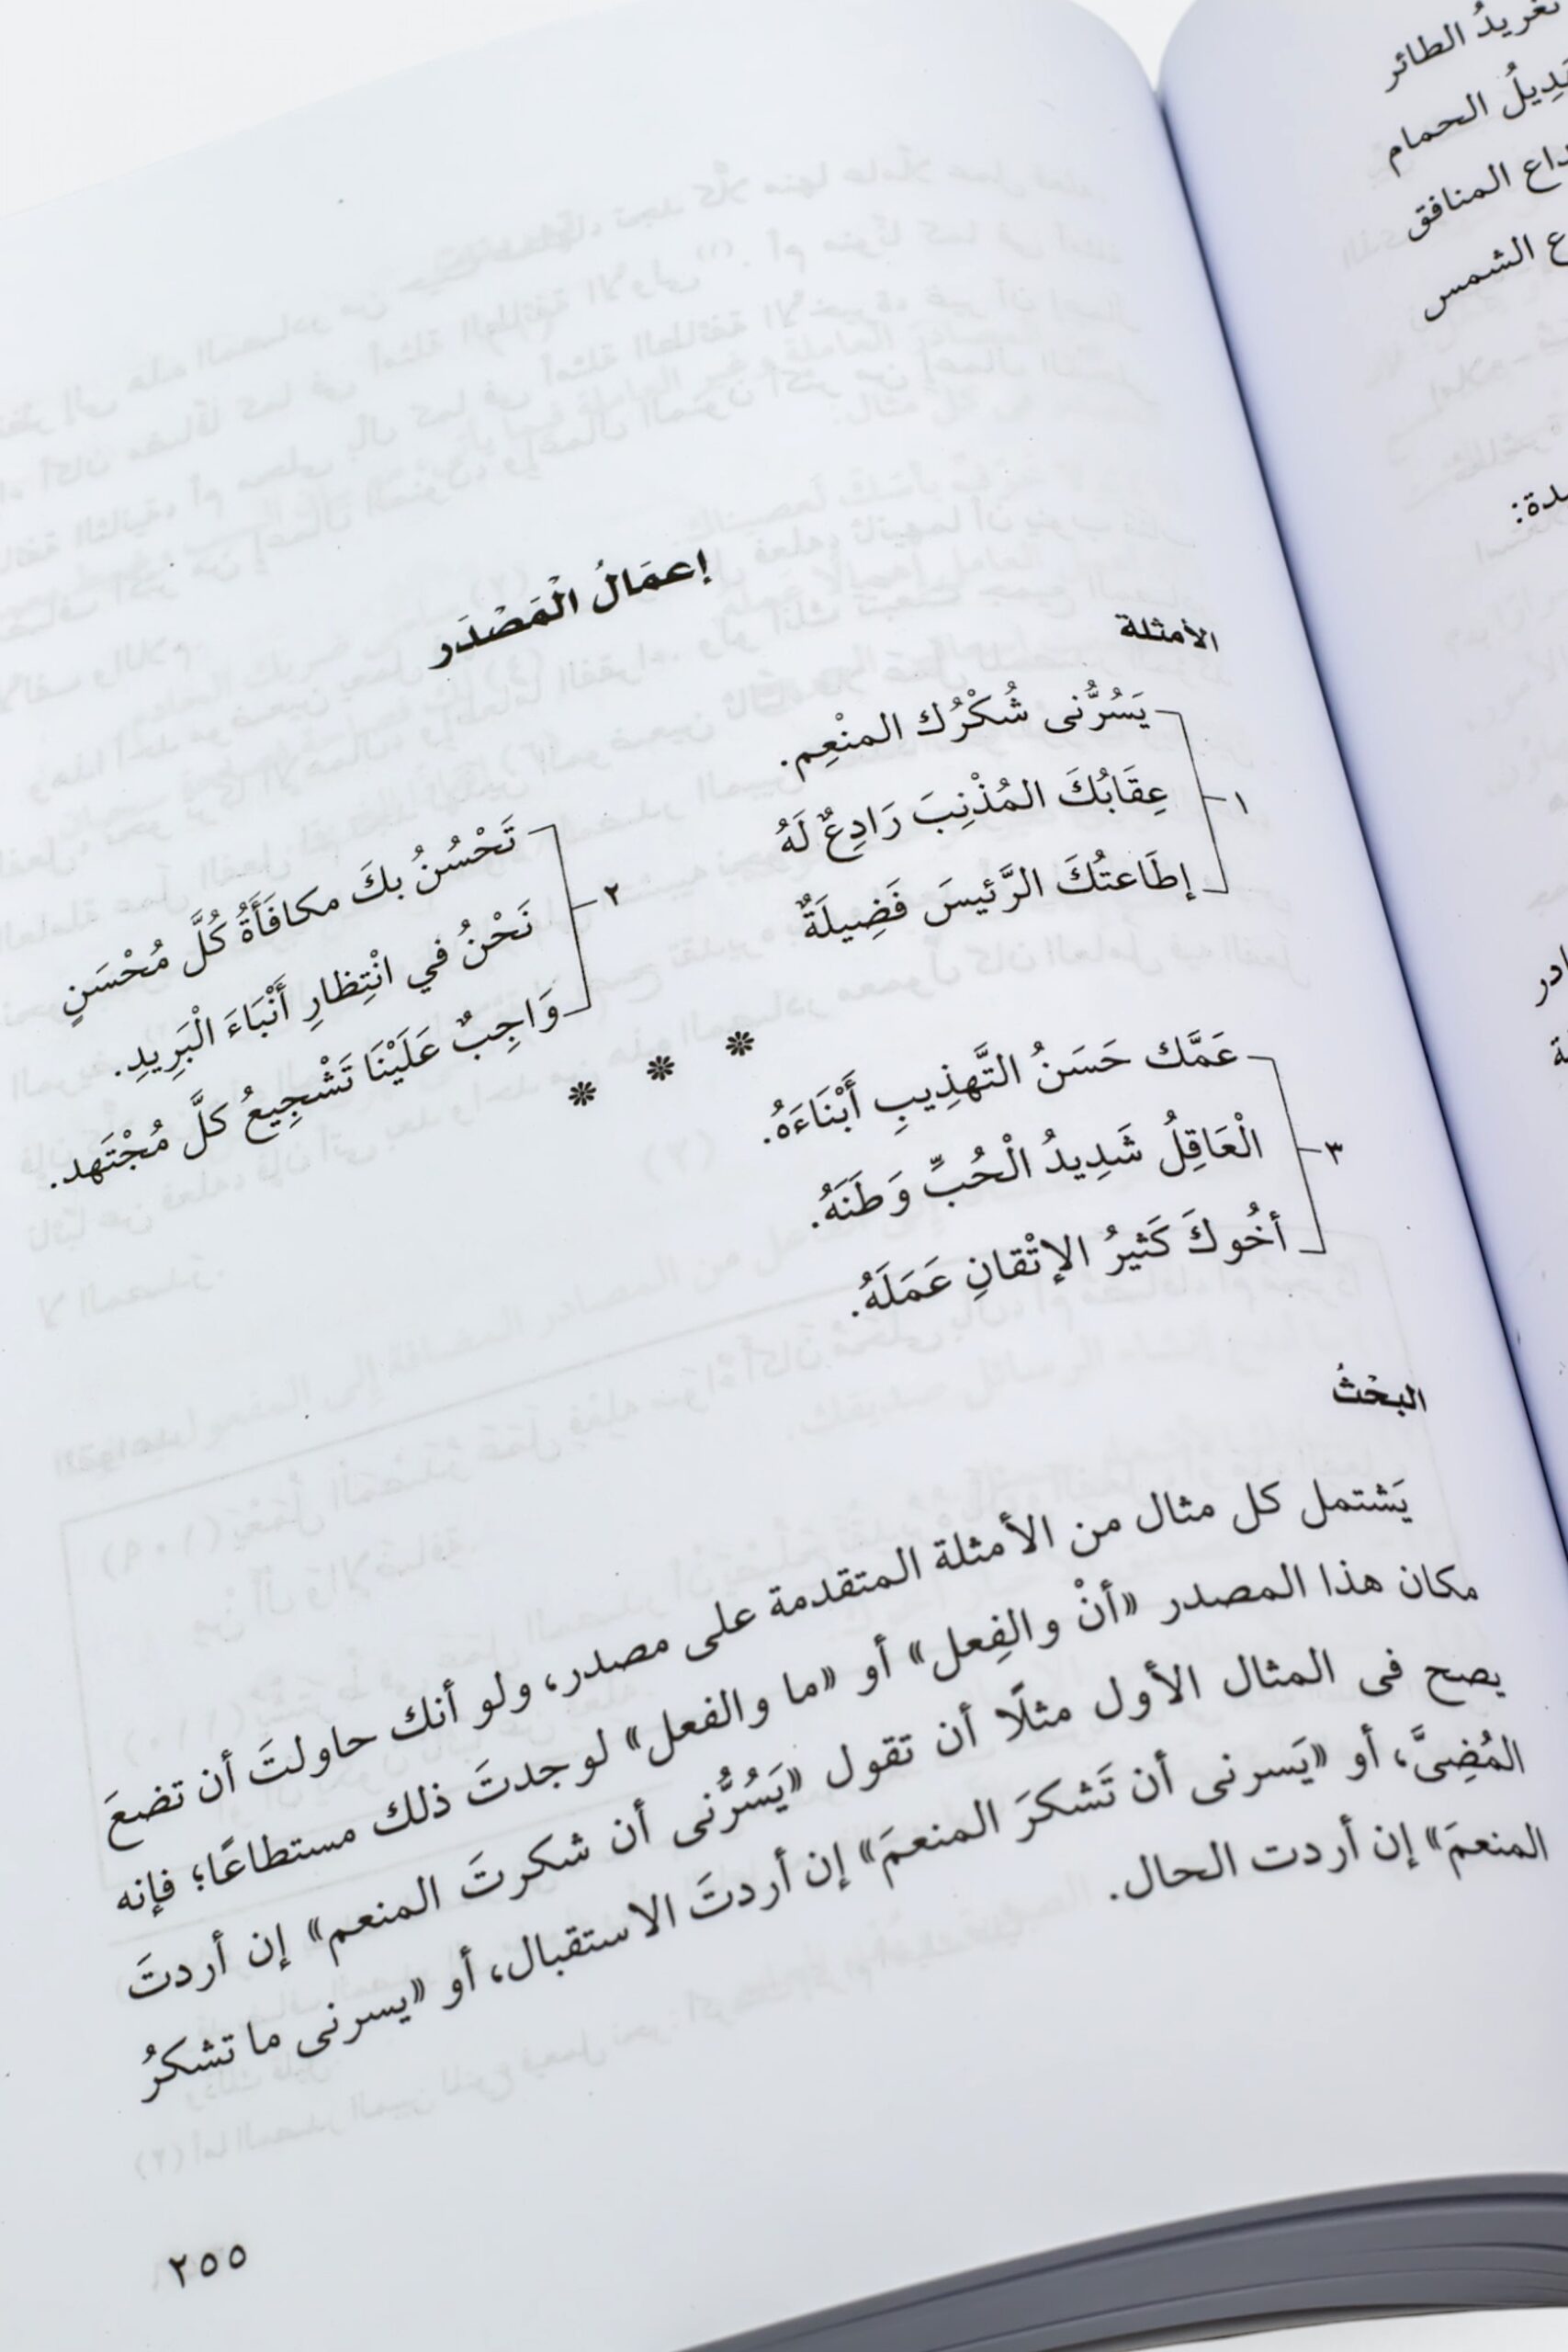 إعمَالُ الْمَصْدَر
الأمثلة
١
يَسُرُّنى شُكْرُك المنْعِم.
عِقَابُكَ المُذْنِبَ رَادِعٌ لَهُ
إطَاعتُكَ الرَّئيسَ فَضِيلَةٌ
٢
تَحْسُنُ بكَ مكافَأَةُ كُلَّ مُحْسَنٍ
نَحْنُ في انْتِظارِ أَنْبَاءَ الْبَرِيدِ.
وَاجِبٌ عَلَيْنَا تَشْجِيعُ كلَّ مُجْتَهد.
❊ ❊ ❊
٣
عَمَّك حَسَنُ التَّهذِيبِ أَبْنَاءَهُ.
الْعَاقِلُ شَدِيدُ الْحُبِّ وَطَنَهُ.
أخُوكَ كَثيرُ الإتْقانِ عَمَلَهُ.
البحْثُ
يَشتمل كل مثال من الأمثلة المتقدمة على مصدر، ولو أنك حاولتَ أن تضعَ
مكان هذا المصدر «أنْ والفِعل» أو «ما والفعل» لوجدتَ ذلك مستطاعًا؛ فإنه
يصح فى المثال الأول مثلًا أن تقول «يَسُرُّنى أن شكرتَ المنعم» إن أردتَ
المُضِىَّ، أو «يَسرنى أن تَشكرَ المنعمَ» إن أردتَ الاستقبال، أو «يسرنى ما تشكرُ
المنعمَ» إن أردت الحال.
٢٥٥
تغريدُ الطائر
الحمام
المنافق
الشمس